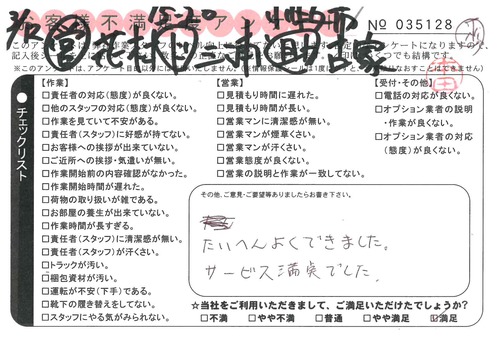 お客様不満足度アンケート
15:20
3/12
№ 035128
チェックリスト
【作業】
□責任者の対応(態度)が良くない。
□他のスタッフの対応(態度)が良くない。
□作業を見ていて不安がある。
□責任者(スタッフ)に好感が持てない。
□お客様への挨拶が出来ていない。
□ご近所への挨拶・気遣いが無い。
□作業開始前の内容確認がなかった。
□作業開始時間が遅れた。
□荷物の取り扱いが雑である。
□お部屋の養生が出来ていない。
□作業時間が長すぎる。
□責任者(スタッフ)に清潔感が無い。
□責任者(スタッフ)が汗くさい。
□トラックが汚い。
□梱包資材が汚い。
□運転が不安(下手)である。
□靴下の履き替えをしてない。
□スタッフにやる気がみられない。
【営業】
□見積もり時間に遅れた。
□見積もり時間が長い。
□営業マンに清潔感が無い。
□営業マンが煙草くさい。
□営業マンが汗くさい。
□営業態度が良くない。
□営業の説明と作業が一致してない。
【受付・その他】
□電話の対応が良くない。
□オプション業者の説明
・作業が良くない。
□オプション業者の対応
(態度)が良くない。
その他、ご意見・ご要望等ありましたらお書き下さい。
たいへんよくできました。
サービス満点でした。
☆当社をご利用いただきまして、ご満足いただけたでしょうか?
□不満 □やや不満 □普通 □やや満足 ☑満足